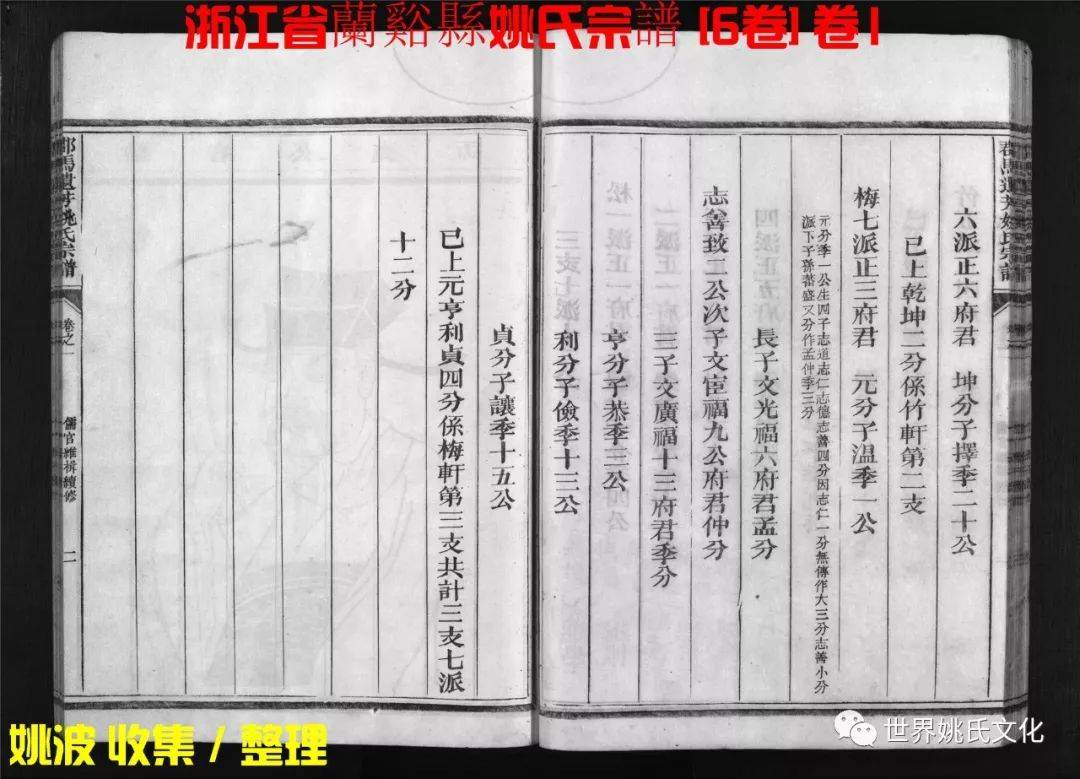 浙江省蘭谿縣姚氏宗譜 [6卷] 卷1
六派正六府君　坤分子擇季二十公
已上乾坤二分係竹軒第二支
梅七派正三府君　元分子溫季一公
元分季一公生四子志道志仁志德志善四分因志仁一分無傳作大三分志善小分
派下子孫蕃盛又分作孟仲季三分
長子文光福六府君孟分
志善致二公次子文宦福九公府君仲分
三子文廣福十三府君季分
亨分子恭季三公
利分子儉季十三公
貞分子讓季十五公
已上元亨利貞四分係梅軒第三支共計三支七派
十二分
姚氏宗譜
卷之一
儒官維楫續修
二
姚波 收集 / 整理
世界姚氏文化